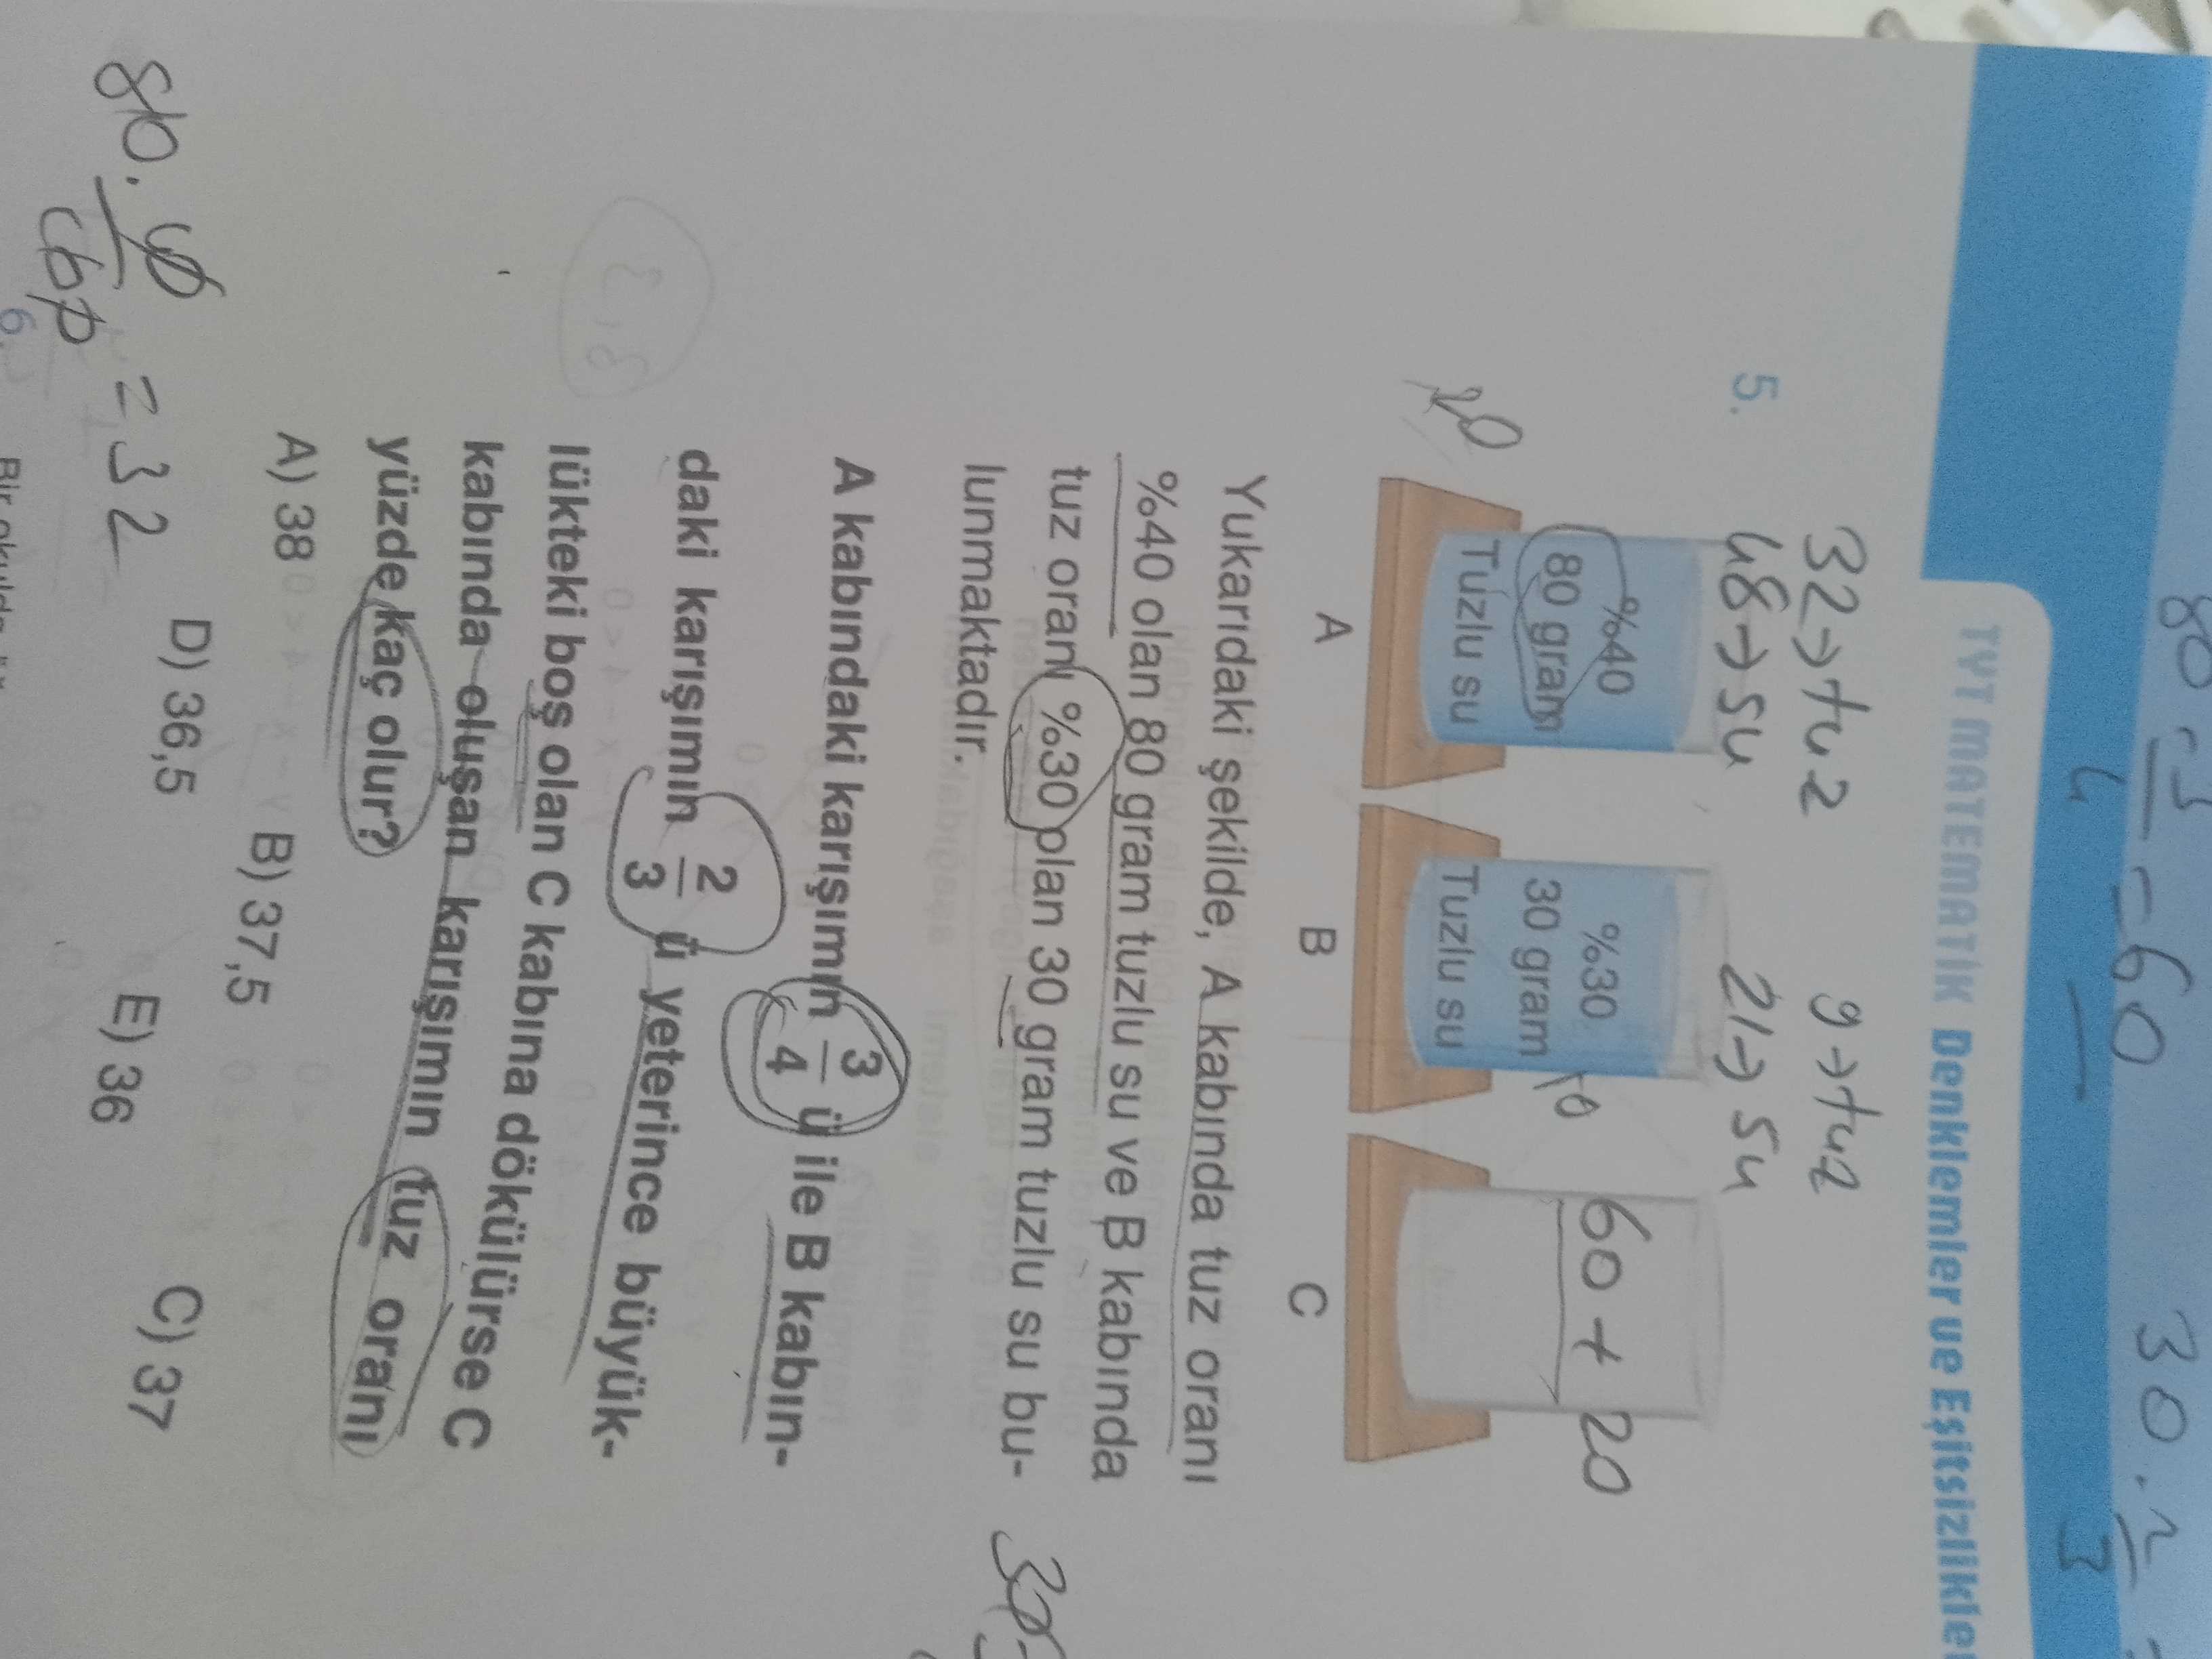 80 · 3/4 = 60
30 · 2/3
TYT MATEMATİK Denklemler ve Eşitsizlikler
32→tuz
9→tuz
5.
48→su
21→su
%40
80 gram
Tuzlu su
%30
30 gram
Tuzlu su
10
60 + 20
20
A
B
C
Yukarıdaki şekilde, A kabında tuz oranı
%40 olan 80 gram tuzlu su ve B kabında
tuz oranı %30 olan 30 gram tuzlu su bu-
lunmaktadır.
A kabındaki karışımın 3/4 ü ile B kabın-
daki karışımın 2/3 ü yeterince büyük-
lükteki boş olan C kabına dökülürse C
kabında oluşan karışımın tuz oranı
yüzde kaç olur?
A) 38
B) 37,5
C) 37
D) 36,5
E) 36
80 · 40/100 = 32
6.